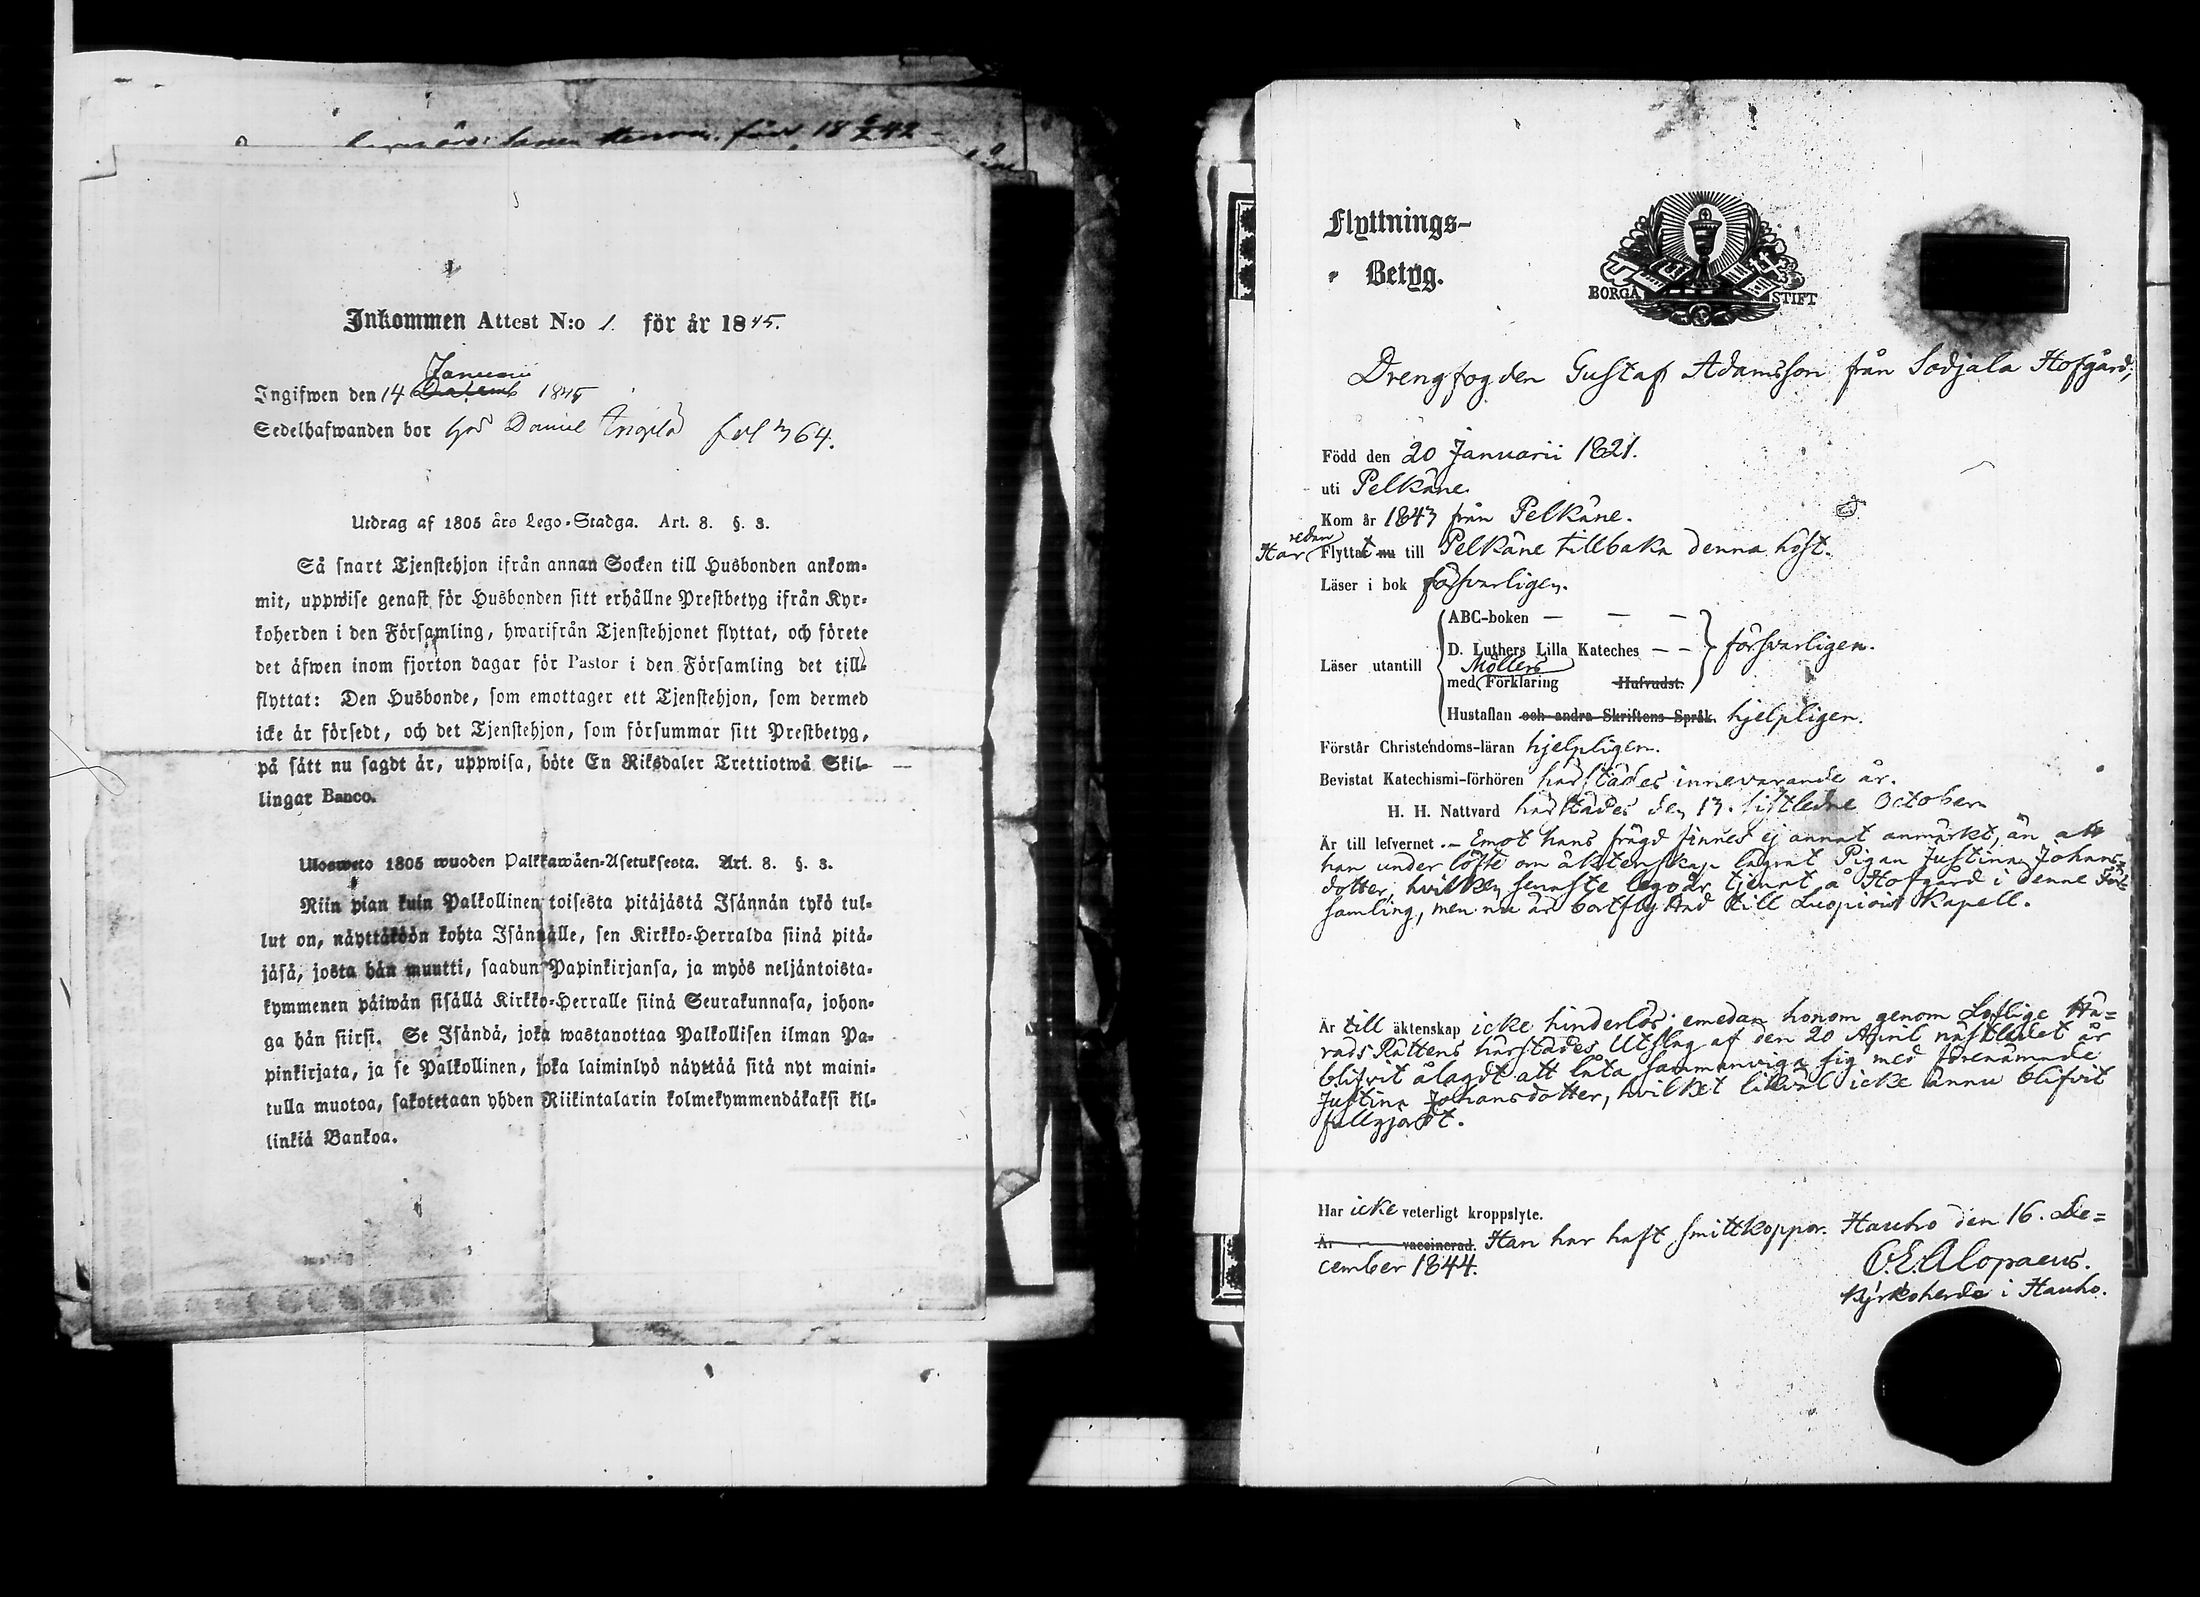 Inkommen Attest N:o 1. för år 1845.
Januarii
Ingifwen den 14 Decemb 1845
Sedelhafwanden bor hos Daniel fol 364.
Utdrag af 1805 års Lego-Stadga. Art. 8. §. 3.
Så snart Tjenstehjon ifrån annan Socken till Husbonden ankom-
mit, uppwise genast för Husbonden sitt erhållne Prestbetyg ifrån Kyr-
koherden i den Församling, hwarifrån Tjenstehjonet flyttat, och förete
det äfwen inom fjorton dagar för Pastor i den Församling det till-
flyttat: Den Husbonde, som emottager ett Tjenstehjon, som dermed
icke är försedt, och det Tjenstehjon, som försummar sitt Prestbetyg,
på sätt nu sagdt är, uppwisa, böte En Riksdaler Trettiotwå Skil-
lingar Banco.
Ulosweto 1805 wuoden Palkkawäen-Asetuksesta. Art. 8. §. 3.
Niin pian kuin Palkollinen toisesta pitäjästä Isännän tykö tul-
lut on, näyttäköön kohta Isännälle, sen Kirkko-Herralda siinä pitä-
jäsä, josta hän muutti, saadun Papinkirjansa, ja myös neljäntoista-
kymmenen päiwän sisällä Kirkko-Herralle siinä Seurakunnasa, johon-
ga hän siirsi. Se Isändä, joka wastanottaa Palkollisen ilman Pa-
pinkirjata, ja se Palkollinen, joka laiminlyö näyttää sitä nyt maini-
tulla muotoa, sakotetaan yhden Riikintalarin kolmekymmendäkaksi kil-
linkiä Bankoa.
Flyttnings-
Betyg.
BORGÅ STIFT
Drengfogden Gustaf Adamsson från Sodjala Hofgård,
Född den 20 Januarii 1821.
uti Pelkäne
Kom år 1843 från Pelkäne.
Har redan Flyttat nu till Pelkäne tillbaka denna höst.
Läser i bok försvarligen.
ABC-boken — — —
D. Luthers Lilla Kateches — — försvarligen.
Läser utantill
Möllers
med Förklaring Hufvudst.
Hustaflan och andra Skriftens Språk. hjelpligen.
Förstår Christendoms-läran hjelpligen.
Bevistat Katechismi-förhören härstädes innevarande år.
H. H. Nattvard härstädes den 13. sistledne October
Är till lefvernet .- Emot hans frägd finnes ej annat anmärkt, än att
han under löfte om äktenskap lägrat Pigan Justina Johans-
dotter, hvilken sennste legoår tjenat å Hofgård i denne För-
samling, men nu är bortflyttad till Luopiois Kapell.
Är till äktenskap icke hinderlös emedan honom genom Loflige Hä-
rads Rättens härstädes Utslag af den 20 April nästledet år
blifvit ålagdt att låta sammanviga sig med förenämnde
Justina Johansdotter, hvilket likväl icke ännu blifvit
fullgjordt.
Har icke veterligt kroppslyte.
Är vaccinerad. Han har haft smittkoppor. Hauho den 16. De-
cember 1844.
C.E. Alopaeus.
Kyrkoherde i Hauho.